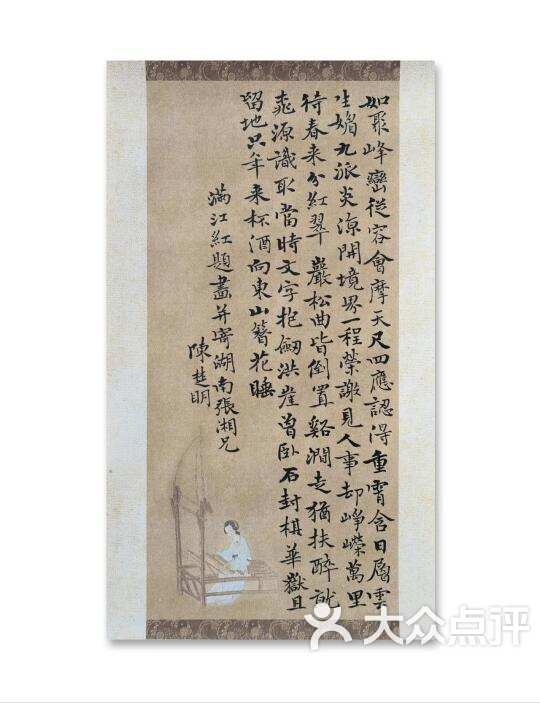 如聚峰巒從容會摩天尺四應認得重霄含日層雲
生媚九派炎涼開境界一程榮謝見人事却崢嶸萬里
待春來分紅翠巖松曲皆倒置谿澗走猶扶醉就
桃源識取當時文字抱劍洪崖曾卧石封棋華嶽且
留地只年來杯酒向東山簪花睡
滿江紅題畫并寄湖南張湘兄
陳楚明
大众点评